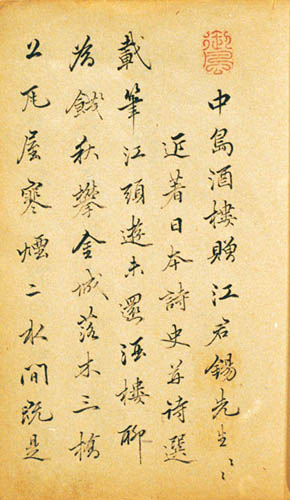 中島酒樓贈江君錫先生〻〻
近著日本詩史并詩選
載筆江頭遊未還酒樓聊
為餞秋攀金城落木三橋
上瓦屋寒煙二水間既是